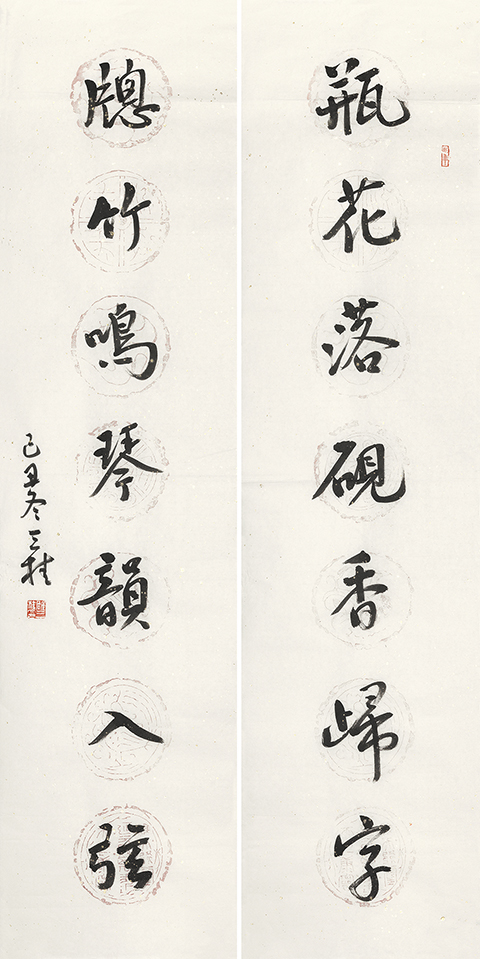 瓶花落硯香歸字
牕竹鳴琴韻入弦
己丑冬 三桂